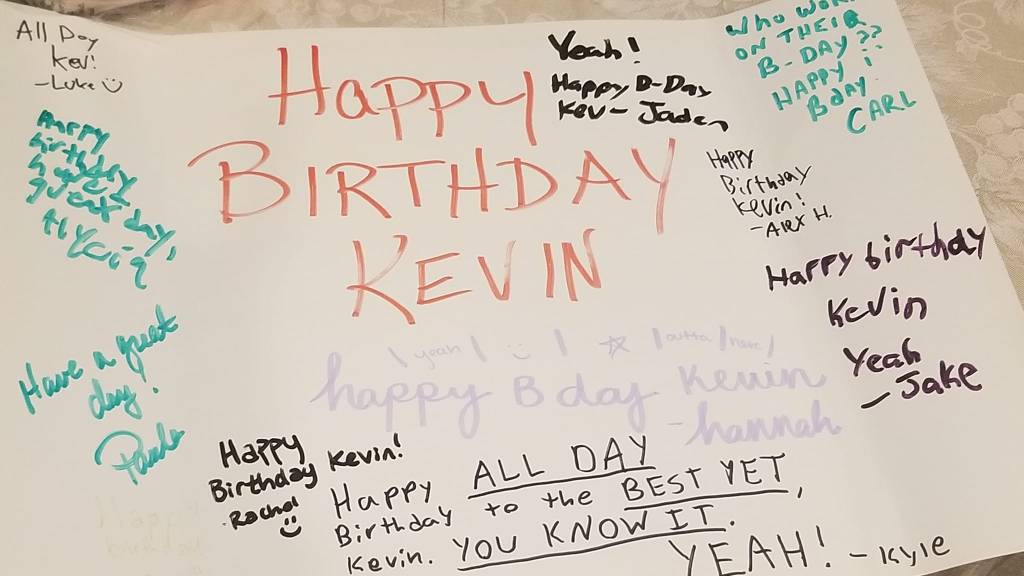 All Day
Kev!
-Luke
Happy
BIRTHDAY
KEVIN
Yeah!
Happy B-Day
Kev- Jaden
WHO WORK
ON THEIR
B-DAY??
HAPPY
Bday!
CARL
Happy
birthday
great day,
Alycia
Happy
Birthday
Kevin!
-Alex H.
Happy birthday
Kevin
Yeah
-Jake
Have a great
day!
Paula
yeah outta here!
happy B day Kevin
-hannah
Happy
Birthday
-Rachel
Kevin!
Happy ALL DAY
Birthday to the BEST YET,
Kevin. YOU KNOW IT.
YEAH! -Kyle
Happy
birthday